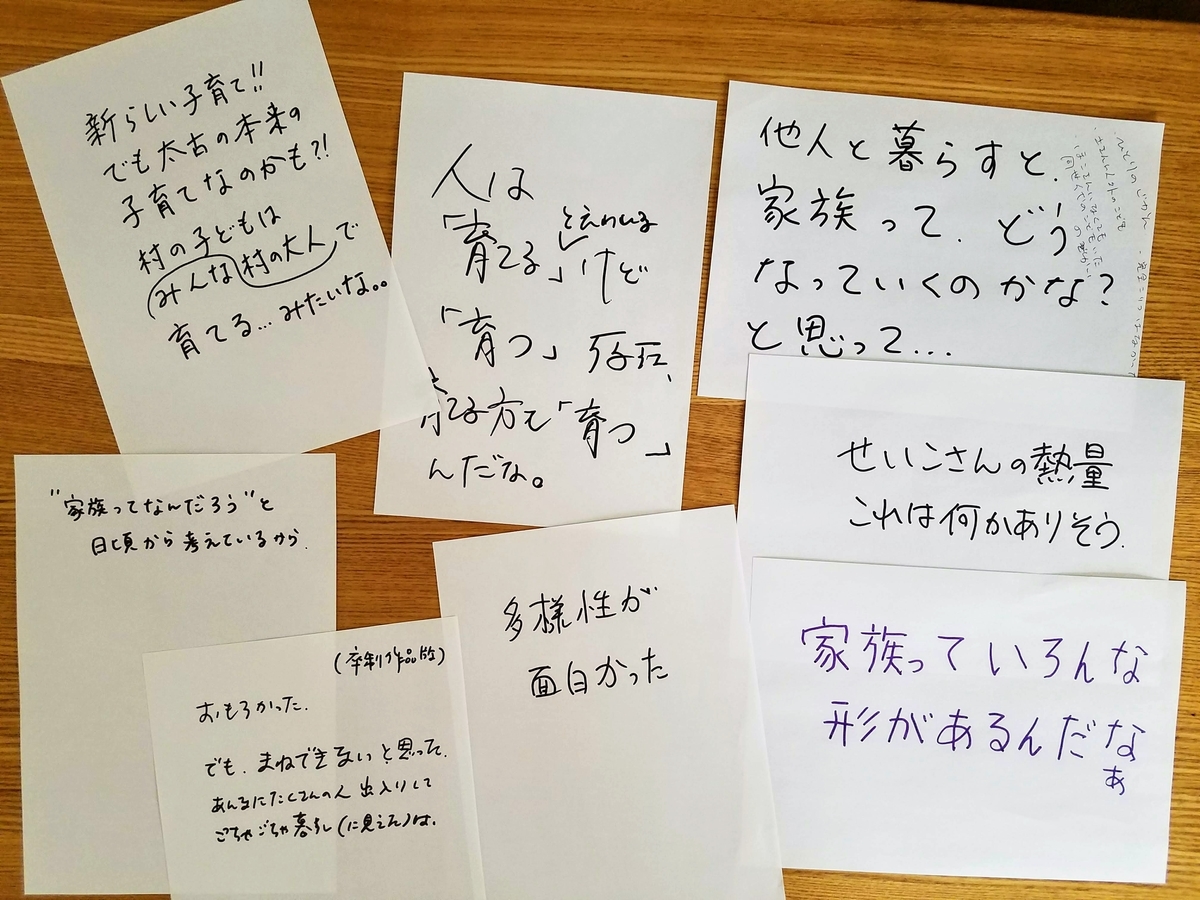 新らしい子育て!!
でも太古の本来の
子育てなのかも?!
村の子どもは
みんな村の大人で
育てる…みたいな。。
人は
「育てる」と云われるけど
「育つ」
てる方も「育つ」
んだな。
他人と暮らすと、
家族って、どう
なっていくのかな?
と思って…
ひとりの じかん
せいこさんの熱量
これは何かありそう。
"家族ってなんだろう"と
日頃から考えているから。
(卒制作品版)
おもろかった。
でも、まねできないと思った。
あんなにたくさんの人 出入りして
ごちゃごちゃ暮らし(に見えた)は。
多様性が
面白かった
家族っていろんな
形があるんだなぁ